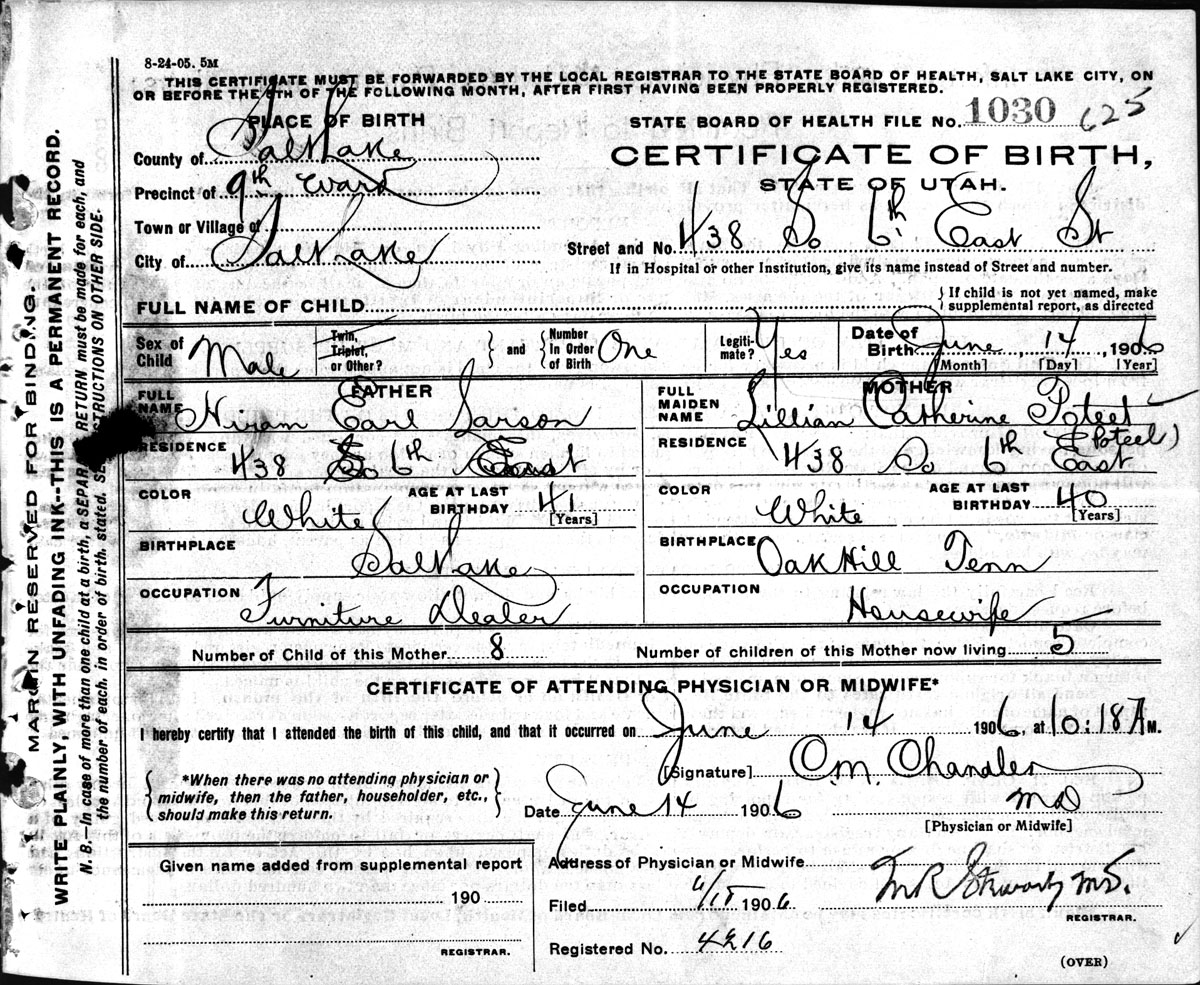 8-24-05. 5M
THIS CERTIFICATE MUST BE FORWARDED BY THE LOCAL REGISTRAR TO THE STATE BOARD OF HEALTH, SALT LAKE CITY, ON
OR BEFORE THE 5TH OF THE FOLLOWING MONTH, AFTER FIRST HAVING BEEN PROPERLY REGISTERED.
PLACE OF BIRTH
STATE BOARD OF HEALTH FILE No. 1030 625
County of Salt Lake
CERTIFICATE OF BIRTH,
Precinct of 9th Ward
STATE OF UTAH.
Town or Village of
Street and No. 438 So 6th East St
City of Salt Lake
If in Hospital or other Institution, give its name instead of Street and number.
FULL NAME OF CHILD
If child is not yet named, make
supplemental report, as directed
Sex of Child Male
Twin, Triplet, or Other?
and Number in Order of Birth One
Legitimate? Yes
Date of Birth June 14, 1906
[Month] [Day] [Year]
FATHER
FULL NAME Hiram Earl Larson
RESIDENCE 438 So 6th East
COLOR White AGE AT LAST BIRTHDAY 41 [Years]
BIRTHPLACE Salt Lake
OCCUPATION Furniture Dealer
MOTHER
FULL MAIDEN NAME Lillian Catherine Poteet
(Poteel)
RESIDENCE 438 So 6th East
COLOR White AGE AT LAST BIRTHDAY 40 [Years]
BIRTHPLACE Oak Hill Tenn
OCCUPATION Housewife
Number of Child of this Mother 8 Number of children of this Mother now living 5
CERTIFICATE OF ATTENDING PHYSICIAN OR MIDWIFE*
I hereby certify that I attended the birth of this child, and that it occurred on June 14 1906, at 10:18 A M.
*When there was no attending physician or
midwife, then the father, householder, etc.,
should make this return.
[Signature] C.M. Chandler
Date June 14 1906 MD
[Physician or Midwife]
Given name added from supplemental report
190
REGISTRAR.
Address of Physician or Midwife
Filed 6/15 1906 M.D.
REGISTRAR.
Registered No. 4216
(OVER)
MARGIN RESERVED FOR BINDING.
WRITE PLAINLY, WITH UNFADING INK--THIS IS A PERMANENT RECORD.
N. B.--In case of more than one child at a birth, a SEPARATE RETURN must be made for each, and
the number of each, in order of birth, stated. SEE INSTRUCTIONS ON OTHER SIDE.